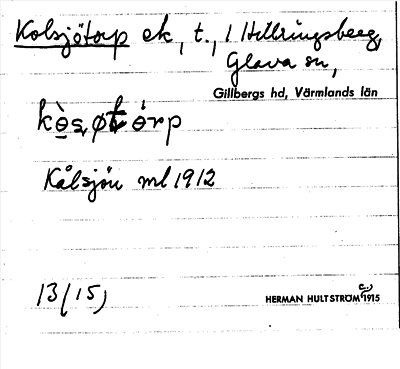 Kolsjötorp ek, t., 1 Hillringsberg,
Glava sn,
Gillbergs hd, Värmlands län
Kålsjön ml 1912
13 (15)
HERMAN HULTSTRÖM 1915